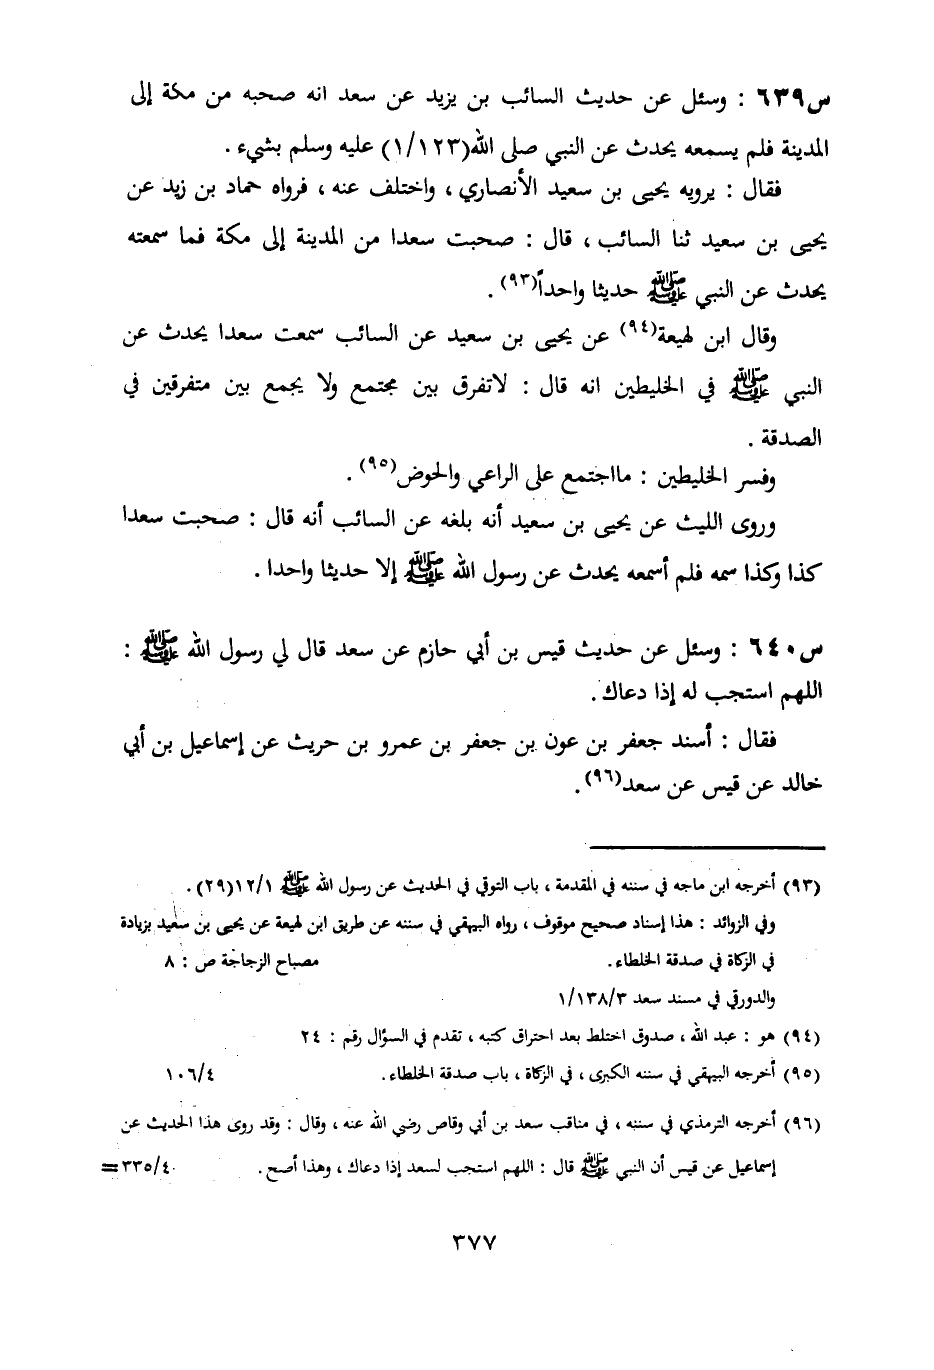 س٦٣٩ : وسئل عن حديث السائب بن يزيد عن سعد انه صحبه من مكة إلى
المدينة فلم يسمعه يحدث عن النبي صلى الله(١/١٢٣) عليه وسلم بشيء .
فقال : يرويه يحيى بن سعيد الأنصاري ، واختلف عنه ، فرواه حماد بن زيد عن
يحيى بن سعيد ثنا السائب ، قال : صحبت سعدا من المدينة إلى مكة فما سمعته
يحدث عن النبي ﷺ حديثا واحداً(٩٣) .
وقال ابن لهيعة(٩٤) عن يحيى بن سعيد عن السائب سمعت سعدا يحدث عن
النبي ﷺ في الخليطين انه قال : لاتفرق بين مجتمع ولا يجمع بين متفرقين في
الصدقة .
وفسر الخليطين : مااجتمع على الراعي والحوض(٩٥) .
وروى الليث عن يحيى بن سعيد أنه بلغه عن السائب أنه قال : صحبت سعدا
كذا وكذا سمه فلم أسمعه يحدث عن رسول الله ﷺ إلا حديثا واحدا .
س٦٤٠ : وسئل عن حديث قيس بن أبي حازم عن سعد قال لي رسول الله ﷺ :
اللهم استجب له إذا دعاك .
فقال : أسند جعفر بن عون بن جعفر بن عمرو بن حريث عن إسماعيل بن أبي
خالد عن قيس عن سعد(٩٦) .
(٩٣) أخرجه ابن ماجه في سننه في المقدمة ، باب التوقي في الحديث عن رسول الله ﷺ ١٢/١(٢٩) .
وفي الزوائد : هذا إسناد صحيح موقوف ، رواه البيهقي في سننه عن طريق ابن لهيعة عن يحيى بن سعيد بزيادة
في الزكاة في صدقة الخلطاء . مصباح الزجاجة ص : ٨
والدورقي في مسند سعد ١/١٣٨/٣
(٩٤) هو : عبد الله ، صدوق اختلط بعد احتراق كتبه ، تقدم في السؤال رقم : ٢٤
(٩٥) أخرجه البيهقي في سننه الكبرى ، في الزكاة ، باب صدقة الخلطاء . ١٠٦/٤
(٩٦) أخرجه الترمذي في سننه ، في مناقب سعد بن أبي وقاص رضي الله عنه ، وقال : وقد روى هذا الحديث عن
إسماعيل عن قيس أن النبي ﷺ قال : اللهم استجب لسعد إذا دعاك ، وهذا أصح . ٣٣٥/٤ =
٣٧٧